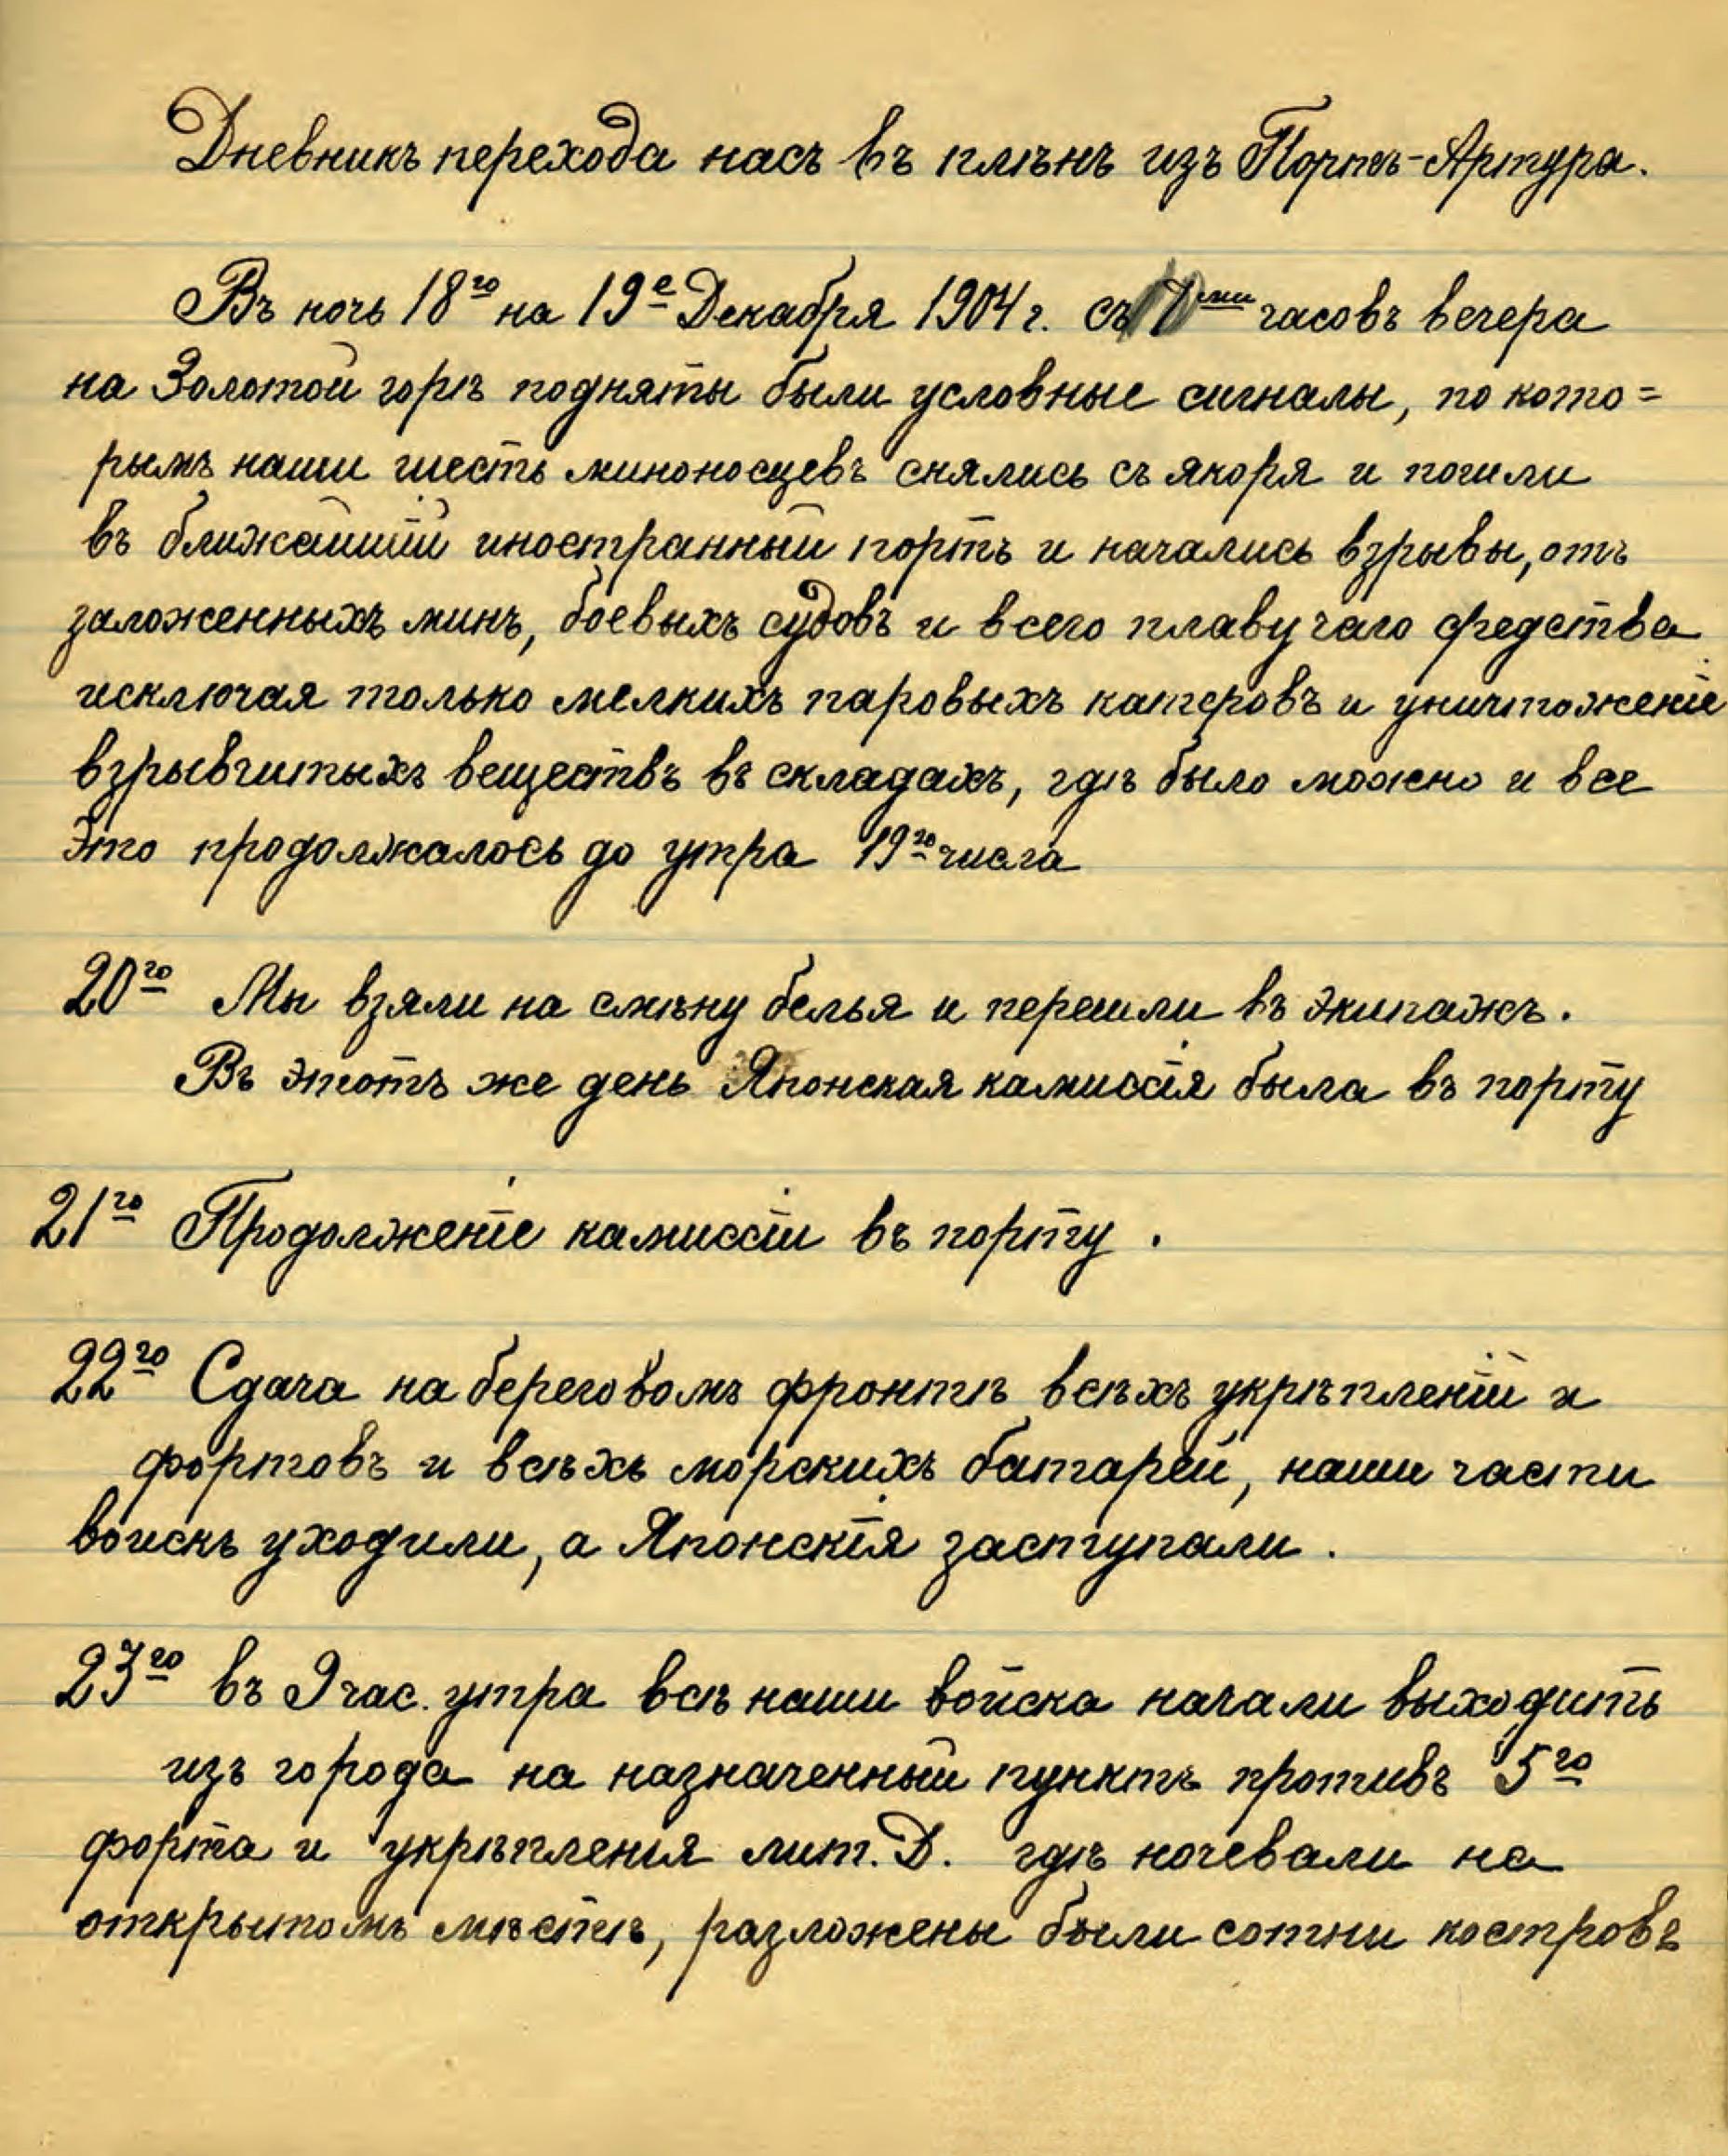 Дневникъ перехода насъ въ плѣнъ изъ Портъ-Артура.
Въ ночь 18го на 19е Декабря 1904 г. съ ми часовъ вечера
на Золотой горѣ подняты были условные сигналы, по кото=
рымъ наши шесть миноносцевъ снялись съ якоря и пошли
въ ближайшій иностранный портъ и начались взрывы, отъ
заложенныхъ минъ, боевыхъ судовъ и всего плавучаго средства
исключая только мелкихъ паровыхъ катеровъ и уничтоженіе
взрывчитыхъ веществъ въ складахъ, гдѣ было можно и все
это продолжалось до утра 19го числа
20го Мы взяли на смѣну белья и перешли въ экипажъ.
Въ этотъ же день Японская камиссія была въ порту
21го Продолженіе камиссіи въ порту.
22го Сдача на береговомъ фронтѣ всѣхъ укрѣпленій и
фортовъ и всѣхъ морскихъ батарей, наши части
войскъ уходили, а Японскія заступали.
23го въ 9 час. утра всѣ наши войска начали выходить
изъ города на назначенный пунктъ противъ 5го
форта и укрѣпленія лит. Д. гдѣ ночевали на
открытомъ мѣстѣ, разложены были сотни костровъ